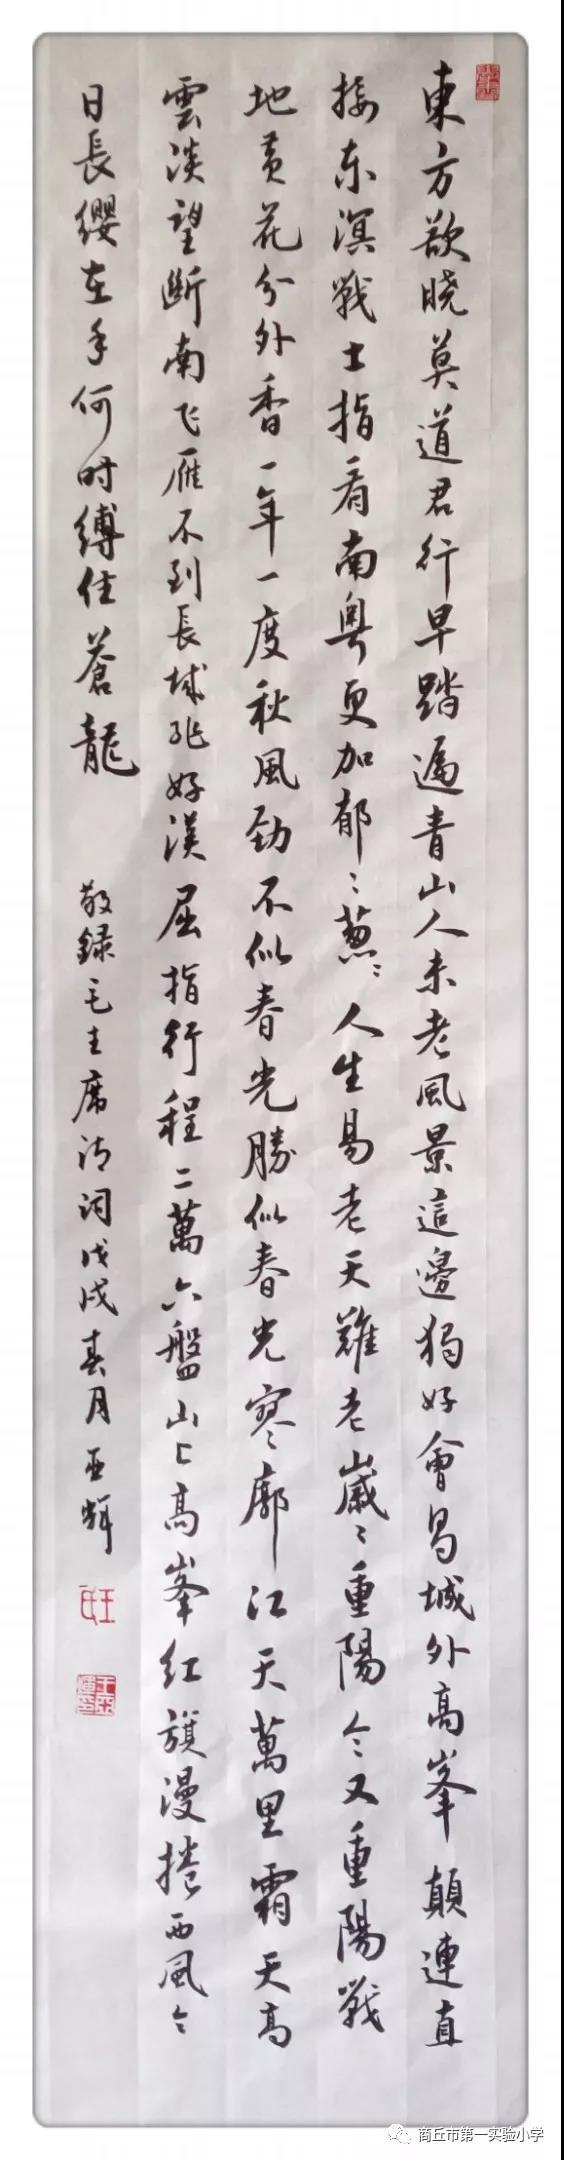 東方欲晓莫道君行早踏遍青山人未老風景這邊獨好會昌城外高峯顛連直
接东溟戰士指看南粤更加郁〻葱〻人生易老天難老歲〻重陽今又重陽戰
地黄花分外香一年一度秋風劲不似春光勝似春光寥廓江天萬里霜天高
雲淡望断南飞雁不到長城非好漢屈指行程二萬六盤山上高峯红旗漫捲西風今
日長缨在手何时缚住蒼龍
敬録毛主席诗词戊戌春月亚辉
商丘市第一实验小学